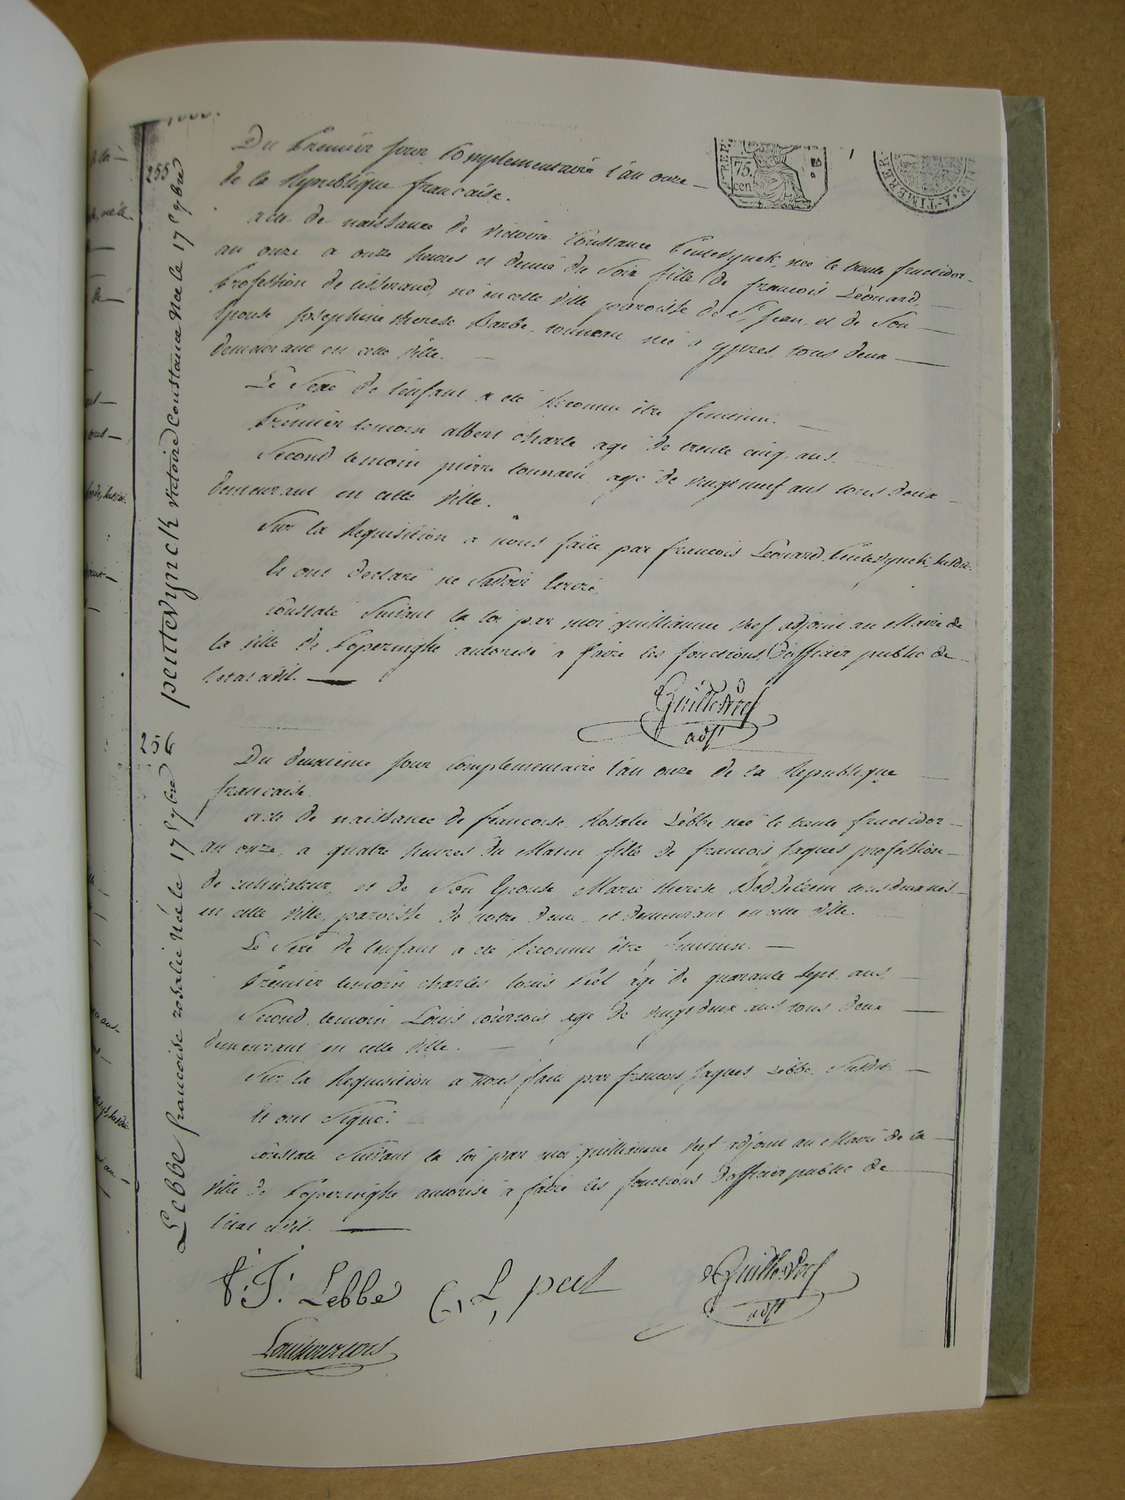 255
peutevynck victoire Constance Née le 17 7bre
Du Premier jour Complementaire l'an onze
de la Republique francaise.
acte de naissance de victoire Constance Peutevynck, née le trente fructidor
an onze a onze heures et demie du soir fille de francois Léonard
Profession de tisserand, né en cette ville paroisse de St Jean, et de Son
Epouse Josephine therese Barbe née a ypres tous deux
demeurant en cette ville.
Le Sexe de l'enfant a été reconnu être feminin.
Premier temoin albert charle agé de trente cinq ans.
Second temoin pierre agé de vingt neuf ans tous deux
demeurant en cette ville.
Sur la Requisition a nous faite par francois Léonard Peutevynck, susdit
Ils ont declaré ne savoir Ecrire.
Constaté Suivant la loi par moi guillaume Dref adjoint au Maire de
la ville de Poperinghe autorisé a faire les fonctions D'officier public de
l'etat civil.
adjt
256
Lebbe francoise rosalie Née le 17 7bre
Du deuxieme jour complementaire l'an onze de la Republique
francaise.
acte de naissance de francoise Rosalie Lebbe née le trente fructidor
an onze a quatre heures du Matin fille de francois Jaques profession
de cultivateur, et de Son Epouse Marie therese tous deux nés
en cette ville, paroisse de notre dame, et demeurant en cette ville.
Le Sexe de l'enfant a été Reconnu être feminin.
Premier temoin charles louis Peel agé de quarante Sept ans
Second temoin Louis agé de vingt deux ans tous deux
demeurant en cette ville.
Sur la Requisition a nous faite par francois Jaques Lebbe, Susdit
Ils ont Signé.
Constaté Suivant la loi par moi guillaume Dref adjoint au Maire de la
ville de Poperinghe autorisé a faire les fonctions D'officier public de
l'etat civil.
f: J: Lebbe C, L, peel
adjt